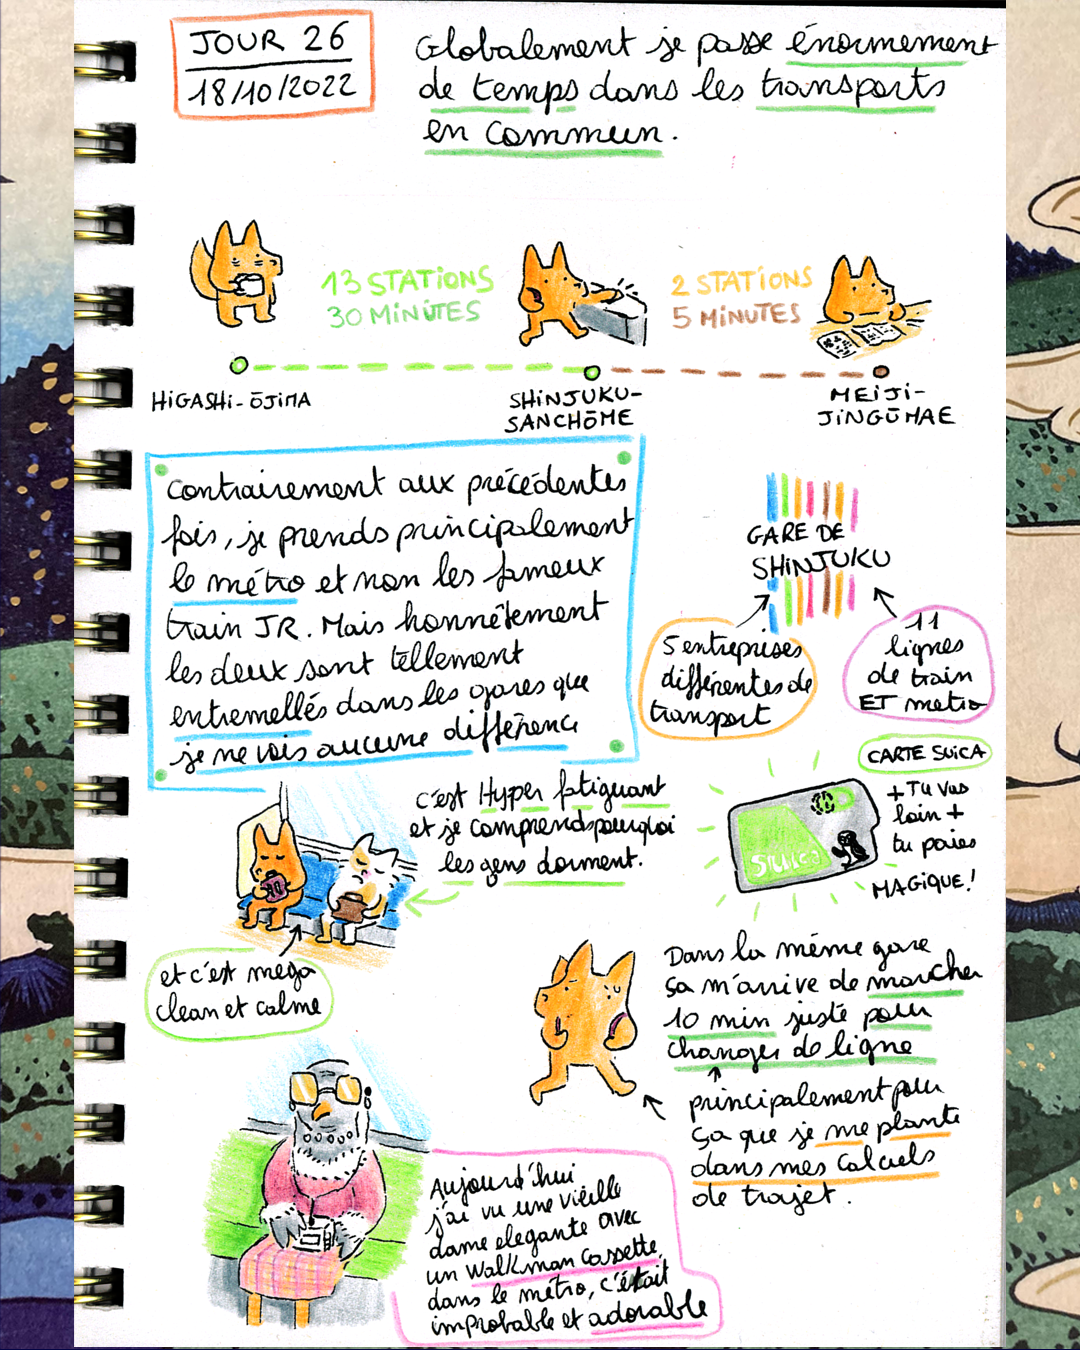 JOUR 26
18/10/2022
Globalement je passe énormement
de temps dans les transports
en commun.
13 STATIONS
30 MINUTES
2 STATIONS
5 MINUTES
HIGASHI-ŌJIMA
SHINJUKU-
SANCHŌME
MEIJI-
JINGŪMAE
Contrairement aux précédentes
fois, je prends principalement
le métro et non les fameux
train JR. Mais honnêtement
les deux sont tellement
entremellés dans les gares que
je ne vois aucune différence
GARE DE
SHINJUKU
5 entreprises
différentes de
transport
11
lignes
de train
ET metro
CARTE SUICA
+ Tu vas
loin +
tu paies
MAGIQUE!
Suica
c'est Hyper fatiguant
et je comprends pourquoi
les gens dorment.
et c'est mega
clean et calme
Dans la même gare
ça m'arrive de marcher
10 min juste pour
changer de ligne
principalement pour
ça que je me plante
dans mes calculs
de trajet.
Aujourd'hui
j'ai vu une vieille
dame elegante avec
un walkman cassette
dans le métro, c'était
improbable et adorable